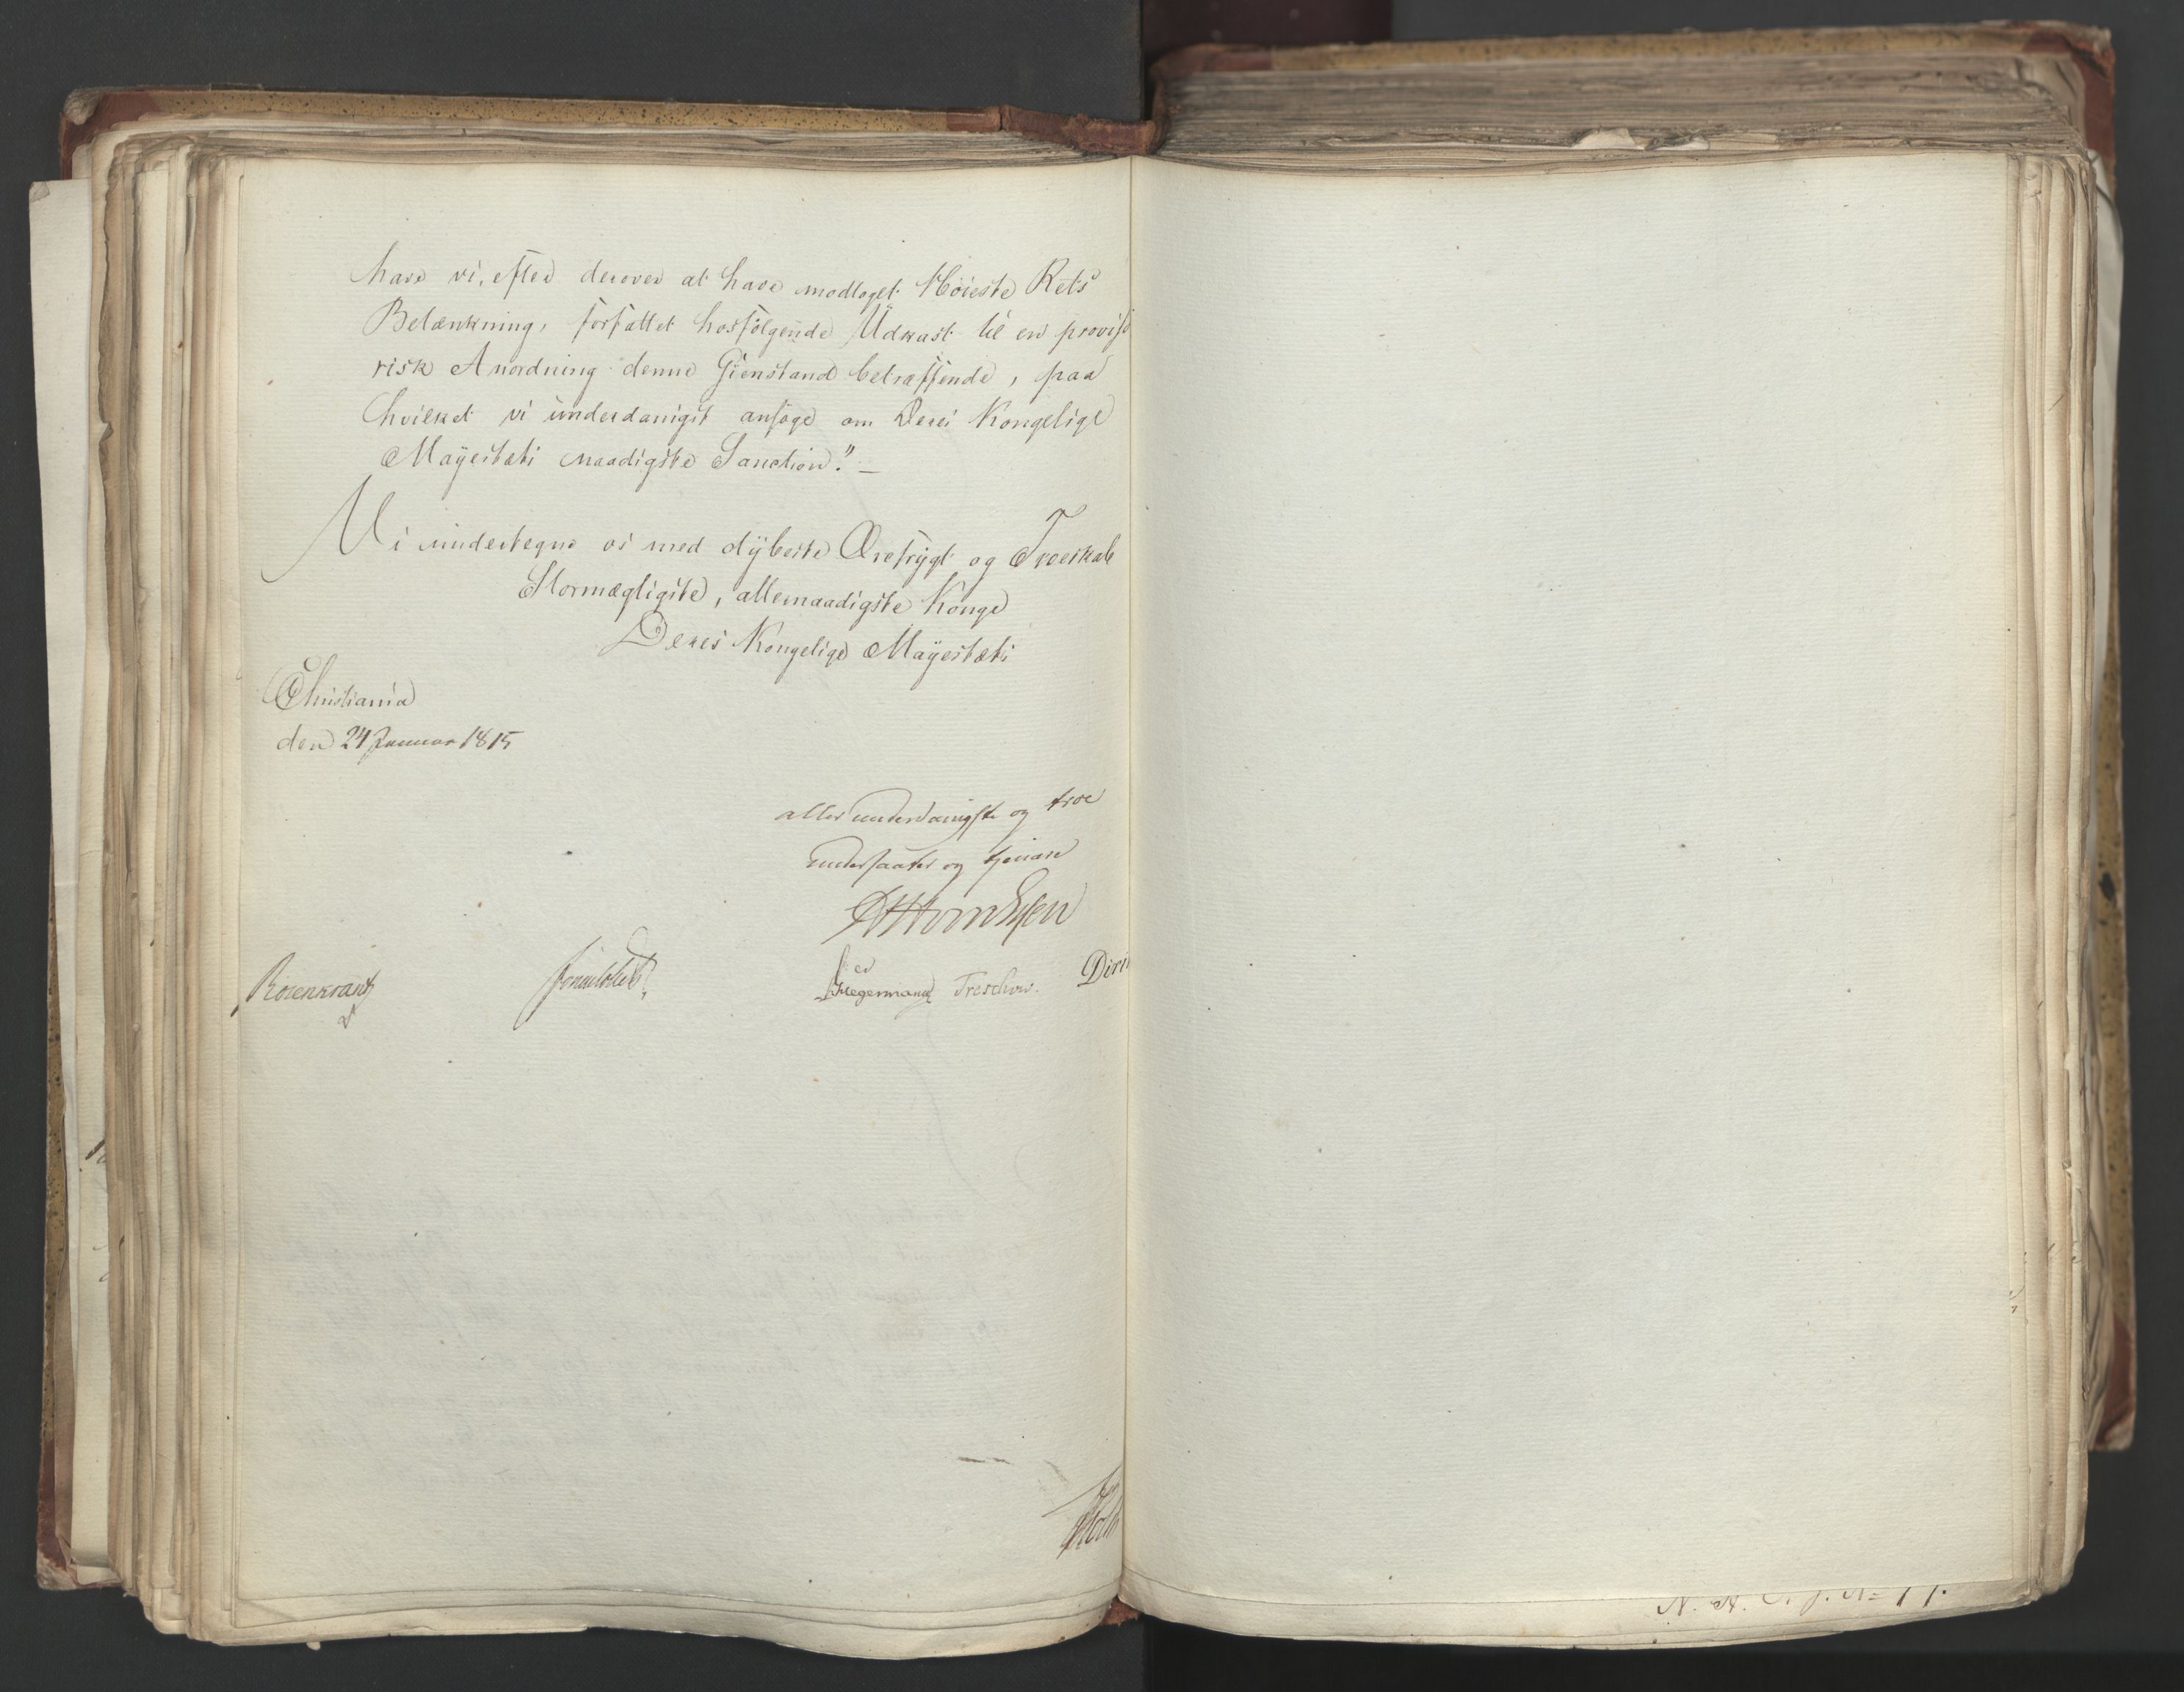 have vi, efter derover at have modtaget Høieste Rets
Betænkning, forfattet hosfølgende Udkast til en proviso
risk Anordning denne Gienstand betræffende, paa
hvilket vi underdanigst ansøge om Deres Kongelige
Mayestæts naadigste Sanction." —
Vi undertegne os med dybeste Ærefrygt og Troeskab
Stormægtigste, allernaadigste Konge
Deres Kongelige Mayestæts
Christiania
den 24 Januar 1815
allerunderdanigste og troe
undersaatter og tjenere
Rosenkrantz
Hegermann
Treschow.